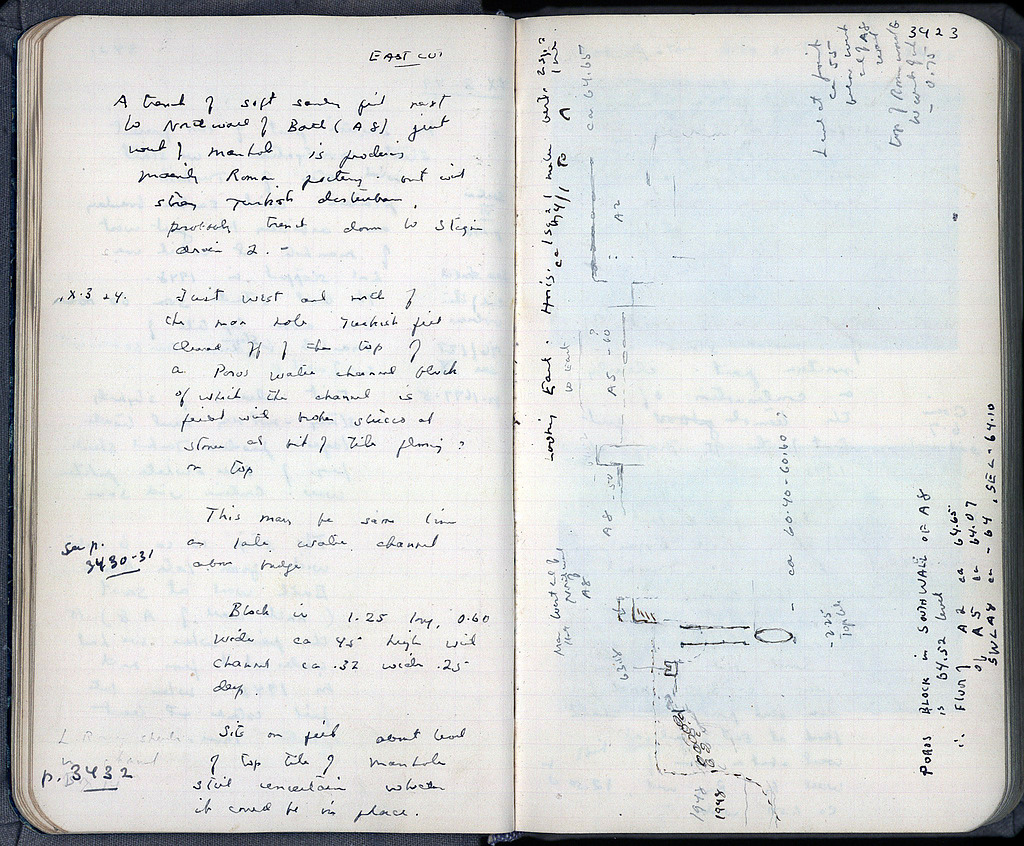 EAST CUT
A trench of soft sandy fill next
to North wall of Bath (A 8) just
west of manhole is producing
mainly Roman pottery but with
strong Turkish disturbance,
probably trench down to Stygian
drain 2. -
.X.3 24. Just west and north of
the man hole Turkish fill
cleared off of the top of
a Poros water channel block
of which the channel is
filled with broken stucco and
stones and bit of tile flooring ?
on top
This may be same line
as late water channel
above bridge
See p.
3430-31
Block is 1.25 long, 0.60
wide ca 45 high with
channel ca .32 wide .25
deep
Sits on fill about level
of top tile of manhole
still uncertain whether
it could be in place.
L. Roman sherds
p. 3432
3423
Level at point
ca 55
below west
end of A8
wall
top of Roman wall
- 0.75
Looking East. Horis.
to East
ca 64.65
A2
A5 - 60 ?
A8 - 50
Man
A8
63.18
- ca 60.40 - 60.60 ?
- 2.25
1948
1948
POROS BLOCK IN SOUTH WALL OF A8
is 64.52 level
Floor of A 2 ca 64.65
of A 5 ca 64.07
SW A8 ca - 64 . SEC - 64.10